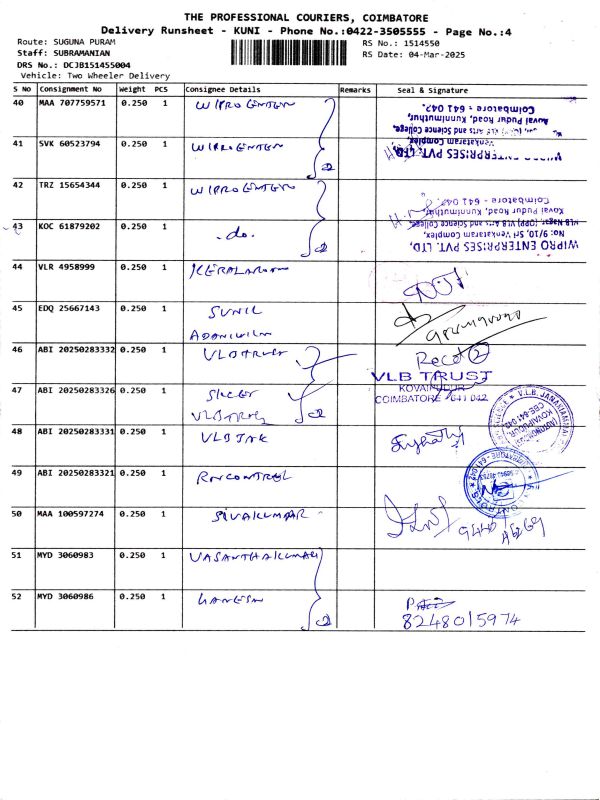 THE PROFESSIONAL COURIERS, COIMBATORE
Delivery Runsheet - KUNI - Phone No.:0422-3505555 - Page No.:4
Route: SUGUNA PURAM
RS No.: 1514550
Staff: SUBRAMANIAN
RS Date: 04-Mar-2025
DRS No.: DCJB151455004
Vehicle: Two Wheeler Delivery
S No Consignment No Weight PCS Consignee Details Remarks Seal & Signature
40 MAA 707759571 0.250 1 WIPRO ENTER
Coimbatore - 641 042.
Kovai Pudur Road, Kunnimuthur,
WIPRO ENTERPRISES PVT. LTD,
41 SVK 60523794 0.250 1 WIPRO ENTER
42 TRZ 15654344 0.250 1 WIPRO ENTER
Coimbatore - 641 042.
Kovai Pudur Road, Kunnimuthur,
VLB Nagar, (OPP) VLB Arts and Science College,
No: 9/10, Sri Venkataram Complex,
WIPRO ENTERPRISES PVT. LTD,
43 KOC 61879202 0.250 1 - do -
44 VLR 4958999 0.250 1
45 EDQ 25667143 0.250 1 SUNIL
46 ABI 20250283332 0.250 1 VLB TRUST
Recd 2
VLB TRUST
KOVAIPUDUR
COIMBATORE - 641 042
47 ABI 20250283326 0.250 1
VLB TRUST
V.L.B. JANAKIAMMAL
(AUTONOMOUS)
KOVAIPUDUR,
CBE-641 042
48 ABI 20250283331 0.250 1 VLB
49 ABI 20250283321 0.250 1 RN CONTROL
50 MAA 100597274 0.250 1 SIVAKUMAR
51 MYD 3060983 0.250 1 VASANTHAKUMARI
52 MYD 3060986 0.250 1 GANESH
8248015974